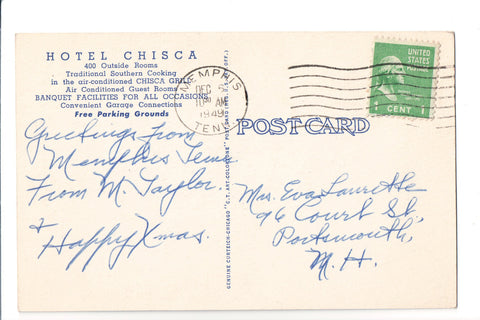 HOTEL CHISCA
400 Outside Rooms
Traditional Southern Cooking
in the air-conditioned CHISCA GRILL
Air Conditioned Guest Rooms
BANQUET FACILITIES FOR ALL OCCASIONS
Convenient Garage Connections
Free Parking Grounds
Greetings from
Memphis Tenn
From M Taylor.
+
Happy Xmas.
GENUINE CURTEICH-CHICAGO "C.T. ART-COLORTONE" POST CARD (REG. U.S. PAT. OFF.)
MEMPHIS
DEC
AM
1949
TENN.
UNITED
STATES
POSTAGE
1 CENT 1
POST CARD
Mrs. Eva Laurette
96 Court St,
Portsmouth,
N. H.